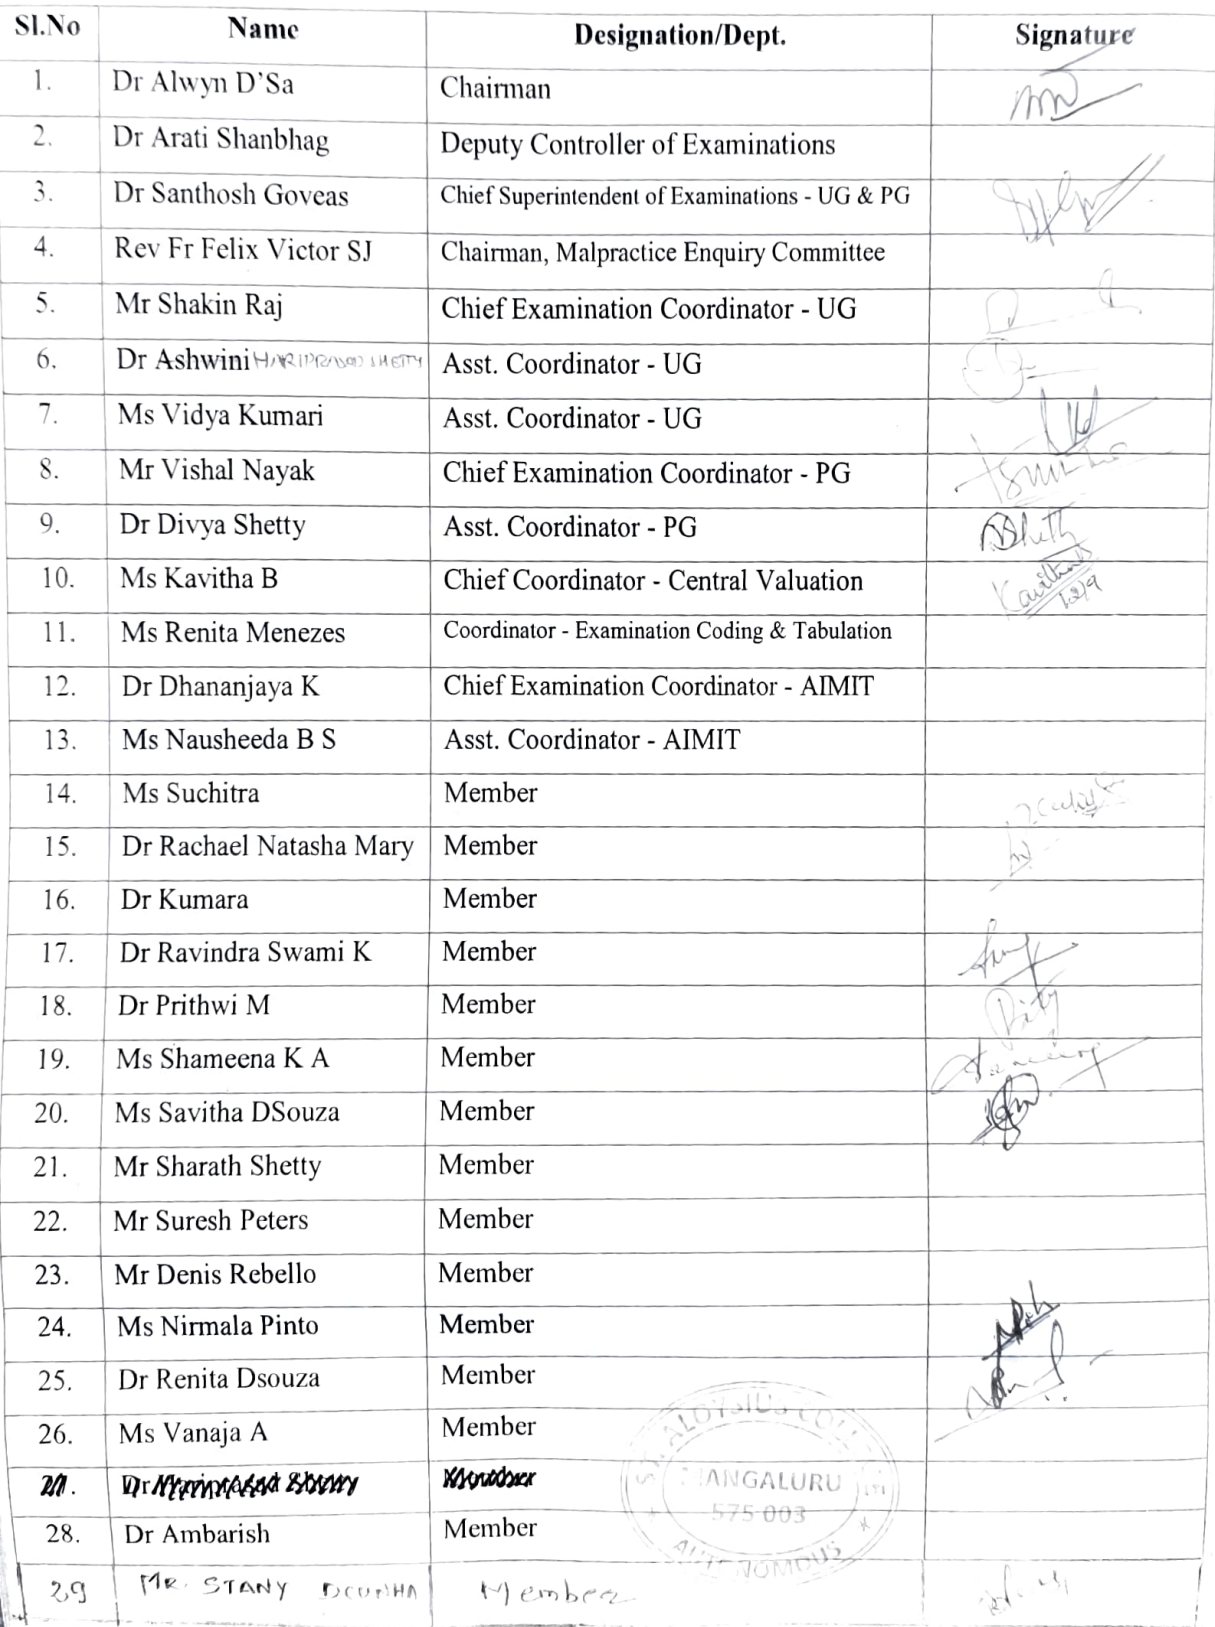 Sl.No Name Designation/Dept. Signature
1. Dr Alwyn D'Sa Chairman
2. Dr Arati Shanbhag Deputy Controller of Examinations
3. Dr Santhosh Goveas Chief Superintendent of Examinations - UG & PG
4. Rev Fr Felix Victor SJ Chairman, Malpractice Enquiry Committee
5. Mr Shakin Raj Chief Examination Coordinator - UG
6. Dr Ashwini HARIPRASAD SHETTY Asst. Coordinator - UG
7. Ms Vidya Kumari Asst. Coordinator - UG
8. Mr Vishal Nayak Chief Examination Coordinator - PG
9. Dr Divya Shetty Asst. Coordinator - PG
10. Ms Kavitha B Chief Coordinator - Central Valuation Kavitha 12/9
11. Ms Renita Menezes Coordinator - Examination Coding & Tabulation
12. Dr Dhananjaya K Chief Examination Coordinator - AIMIT
13. Ms Nausheeda B S Asst. Coordinator - AIMIT
14. Ms Suchitra Member
15. Dr Rachael Natasha Mary Member
16. Dr Kumara Member
17. Dr Ravindra Swami K Member
18. Dr Prithwi M Member
19. Ms Shameena K A Member
20. Ms Savitha DSouza Member
21. Mr Sharath Shetty Member
22. Mr Suresh Peters Member
23. Mr Denis Rebello Member
24. Ms Nirmala Pinto Member
25. Dr Renita Dsouza Member
26. Ms Vanaja A Member
28. Dr Ambarish Member
29 MR. STANY DCUNHA Member
ST. ALOYSIUS COLLEGE
MANGALURU
575 003
AUTONOMOUS